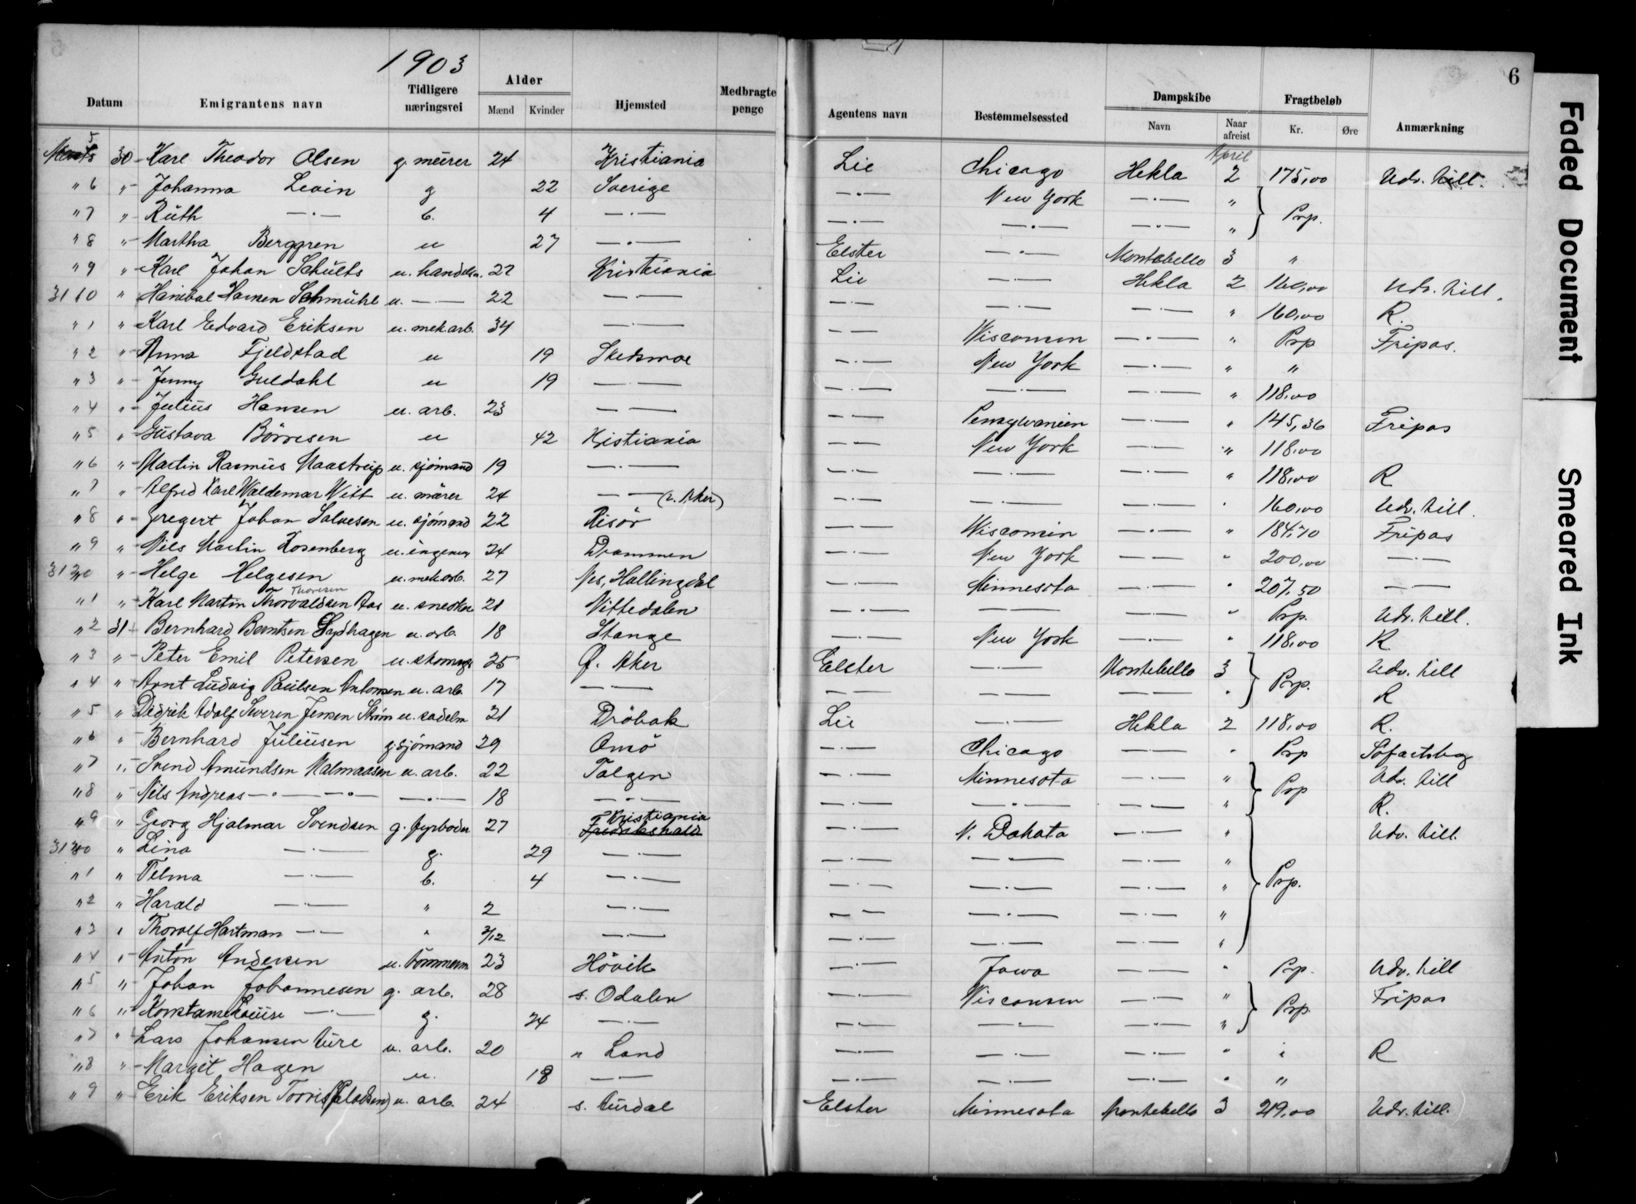 1903
6
Datum Emigrantens navn Tidligere næringsvei Alder Mænd Kvinder Hjemsted Medbragte penge Agentens navn Bestemmelsessted Dampskibe Navn Naar afreist Fragtbeløb Kr. Øre Anmærkning
5 30 Karl Theodor Olsen g. mürer 24 Kristiania Lie Chicago Hekla April 2 175,00 Udv. till.
" 6 " Johanna Levin g 22 Sverige —·— New York —·— " Prp.
" 7 " Ruth —·— b. 4 —·— —·— —·— —·— "
" 8 " Martha Berggren u 27 —·— Elster —·— Montebello 3 "
" 9 " Karl Johan Schults u. handelsm. 27 Kristiania Lie —·— Hekla 2 160,00 Udv. till.
31 10 " Hanibal Hansen Schmühl u. —·— 22 —·— —·— —·— —·— " 160,00 R.
" 1 " Karl Edvard Eriksen u. mek arb. 34 —·— —·— Wisconsin —·— " Prp Fripas.
" 2 " Anna Fjeldstad u 19 Skedsmoe —·— New York —·— " "
" 3 " Jenny Guldahl u 19 —·— —·— —·— —·— " 118,00
" 4 " Julius Hansen u. arb. 23 —·— —·— Pensylvanien —·— " 145,36 Fripas
" 5 " Gustava Börresen u 42 Kistiania —·— New York —·— " 118,00
" 6 " Martin Rasmus Maastrup u. sjömand 19 —·— —·— —·— —·— " 118,00 R
" 7 " Alfred Karl Waldemar Witt u. mürer 24 —·— (v. Aker) —·— —·— —·— " 160,00 Udv. till.
" 8 " Gregert Johan Salvesen u. sjömand 22 Risör —·— Wisconsin —·— " 184,70 Fripas
" 9 " Nils Martin Rosenberg u. ingeniør 24 Drammen —·— New York —·— " 200,00 —·—
31 20 " Helge Helgesen u. mek arb. 27 Nes, Hallingdal —·— Minnesota —·— " 207,50 —·—
" 1 " Karl Martin Thorvaldsen Thoresen Aas u. snedker 21 Nittedalen —·— —·— —·— " Prp. Udv. till.
" 2 31 Bernhard Berntsen Sydhagen u. arb. 18 Stange New York —·— " 118,00 R
" 3 " Peter Emil Petersen u. skomager 25 Ø. Aker Elster —·— Montebello 3 Prp. Udv. till
" 4 " Arnt Ludvig Paulsen Antonsen u. arb. 17 —·— —·— —·— —·— " R
" 5 " Didrik Adolf Severin Jensen u. sadelm 21 Dröbak Lie —·— Hekla 2 118,00 R.
" 6 " Bernhard Juliusen g. sjömand 29 Onsö —·— Chicago —·— " Prp Söfartsbog
" 7 " Svend Amundsen Malmaasen u. arb. 22 Tolgen —·— Minnesota —·— " Prp Udv. till
" 8 " Nils Andreas —·— —·— —·— 18 —·— —·— —·— —·— " R.
" 9 " Georg Hjalmar Svendsen g. fyrböder 27 Kristiania Fredrikshald —·— N. Dakota —·— " Udv. till.
31 30 " Lina —·— g. 29 —·— —·— —·— —·— " Prp.
" 1 " Telma —·— b. 4 —·— —·— —·— —·— "
" 2 " Harald —·— " 2 —·— —·— —·— —·— "
" 3 " Thorolf Hartman —·— " 3/12 —·— —·— —·— —·— "
" 4 " Anton Andersen u. tömmerm 23 Hövik —·— Jowa —·— " Prp. Udv. till
" 5 " Johan Johannesen g. arb. 28 s. Odalen Wisconsin —·— " Prp. Fripas
" 6 " Konstanse Louise —·— g. 24 —·— —·— —·— —·— "
" 7 " Lars Johansen Ure u. arb. 20 " Land —·— —·— —·— " " R
" 8 " Margit Hagen u. 18 —·— —·— —·— —·— " "
" 9 " Erik Eriksen u. arb. 24 s. Aurdal Elster Minnesota Montebello 3 219,00 Udv. till.
Faded Document
Smeared Ink